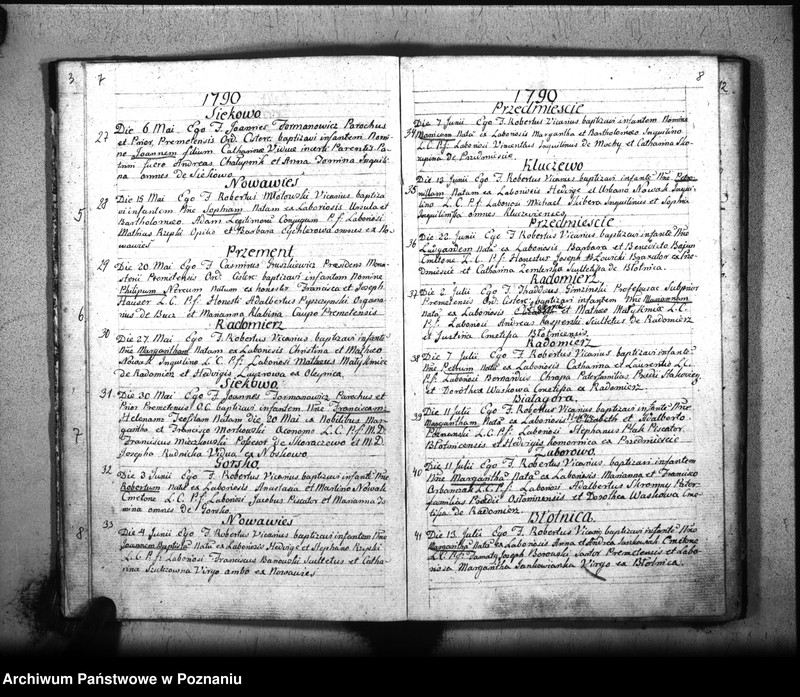 3 7
1790
Siekowo
27 Die 6 Mai Ego F. Joannes Formanowicz Parochus
et Prior Premetensis Ord. Cisterc. baptizavi infantem Nomi-
ne Joannem filium Catharinae Viduae incerti Parentis Pa-
trini fuere Andreas Chałupnik et Anna Domina Inquili-
na omnes de Siekowo
Nowawies
28 Die 15 Mai Ego F. Robertus Wolowski Vicarius baptiza-
vi infantem Nne Sophiam Natam ex Laboriosis Ursula et
Bartholomeo Adam Legitimorum Conjugum P. f. Laboriosi
Mathias Rzepki Opilio et Barbara Cychlarzowa omnes ex No-
wawies
Przement
29 Die 20 Mai Ego F. Casimirus Gruszkiewicz Praesidens Mona-
sterii Premetensis Ord. Cisterc. baptizavi infantem Nomine
Philipum Nereum Natum ex honestis Francisca et Joseph
Hauser L. C. P. f. Honesti Adalbertus Pyszczynski Organa-
rius de Bucz et Marianna Klabina Caupo Premetensis.
Radomierz
30 Die 27 Mai Ego F. Robertus Vicarius baptizavi infante
Nne Margaritham Natam ex Laboriosis Christina et Matheo
Nowak Inquilino L. C. P. f. Laboriosi Matheus Matyskiewicz
de Radomierz et Hedvigis Luzrowa ex Olejnica
Siekowo
31 Die 30 Mai Ego F. Joannes Formanowicz Parochus et
Prior Premetensis O. C. baptizavi infantem Nne Franciscam
Helenam Teofilam Natam die 20 Mai ex Nobilibus Mar-
gharitha et Francisco Morzkowski Oeconomo L. C. P. f. M. D.
Franciscus Miaskowski Possesor de Skoraczewo et M. D.
Josepha Rudnicka Vidua ex Noskowo
Gorsko
32 Die 3 Junii Ego F. Robertus Vicarius baptizavi infante Nne
Robertum Natum ex Laboriosis Anastasia et Martino Nowak
Cmetone L. C. P. f. Laboriosi Jacobus Piscator et Marianna Do-
mina omnes de Gorsko.
Nowawies
33 Die 4 Junii Ego F. Robertus Vicarius baptizavi infantem Nne
Joannem Baptista Natum ex Laboriosis Hedvige et Stephano Rzepki
L. C. P. f. Laboriosi Franciscus Banowski Scultetus et Catha-
rina Szulcowna Virgo ambo ex Nowawies
5
6
7
8
8
1790
Przedmiescie
34 Die 7 Junii Ego F. Robertus Vicarius baptizavi infantem Nomine
Natam ex Laboriosis Margaritha et Bartholomeo Inquilino
L. C. P. f. Laboriosi Vincentius Inquilinus de Mochy et Catharina Sko-
rupina de Przedmiescie.
Kluczewo
35 Die 13 Junii Ego F. Robertus Vicarius baptizavi infante Nne Petro-
nillam Natam ex Laboriosis Hedvige et Urbano Nowak Inqui-
lino L. C. P. f. Laboriosi Michael Skibera Inquilinus et Sophia
Inquilinissa omnes Kluczevienses
Przedmiescie
36 Die 22 Junii Ego F. Robertus Vicarius baptizavi infante Nne
Ludgardem Nata ex Laboriosis Barbara et Benedicto Bajun
Cmetone L. C. P. f. Honestus Joseph Braxator ex Prze-
dmiescie et Catharina Zemlerska Scultetissa de Błotnica.
Radomierz
37 Die 2 Julii Ego F. Thaddaeus Gmzinski Professus Subprior
Premetensis Ord. Cisterc. baptizavi infantem Nne Mariannam
Nata ex Laboriosis et Matheo Matyskiewicz L. C.
P. f. Laboriosi Andreas Kasperski Scultetus de Radomierz
et Justina Cmetissa Błotnicensis.
Radomierz
38 Die 7 Julii Ego F. Robertus Vicarius baptizavi infante
Nne Petrum Natum ex Laboriosis Catharina et Laurentio L. C.
P. f. Laboriosi Bernardus Chropa Paterfamilias
et Dorothea Waskowa Cmetissa ex Radomierz
Białagora
39 Die 11 Julii Ego F. Robertus Vicarius baptizavi infante Nne
Margaritham Nata ex Laboriosis Elizabeth et Adalberto
Poznanski L. C. P. f. Laboriosi Stephanus Ptak Piscator
Błotnicensis et Hedvigis Komornica ex Przedmiescie
Zaborowo
40 Die 11 Julii Ego F. Robertus Vicarius baptizavi infantem
Nne Margaritha Nata ex Laboriosis Marianna et Francisco
Orbaniak L. C. P. f. Laboriosi Adalbertus Skromny Pater
familias Osloninensis et Dorothea Waskowa Cme-
tissa de Radomierz
Błotnica
41 Die 13 Julii Ego F. Robertus Vicarius baptizavi infante Nne
Margaritha Nata ex Laboriosis Anna et Andrea Jankowiak Cmetone
L. C. P. f. Famatus Joseph Borowski Sartor Premetensis et Labo-
riosa Margaritha Jankowianka Virgo ex Błotnica.
12
Archiwum Państwowe w Poznaniu